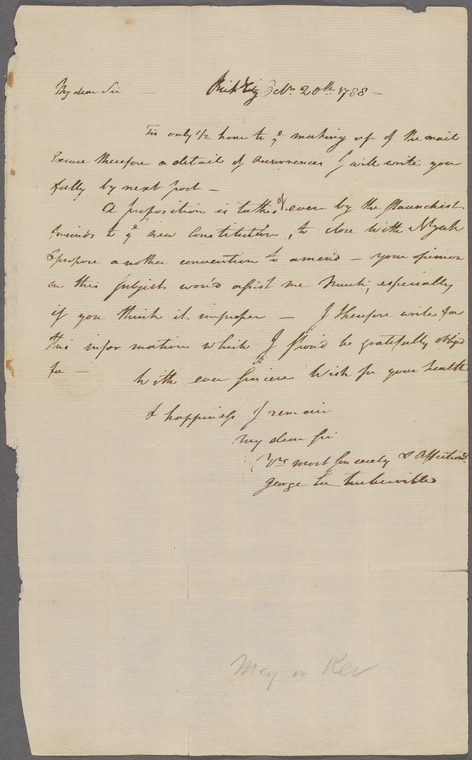 My dear Sir Richd City Octr. 20th 1788 —
Tis only 1/2 hour to ye making up of the mail
Excuse therefore a detail of occurrences I will write you
fully by next post —
A proposition is talkd of even by the staunchest
friends to ye new Constitution, to close with N,york
& propose another convention to amend — your opinion
on this subject wou'd assist me much, especially
if you think it improper — I therefore write for
this information which I shou'd be gratefully obligd
for —
With ever sincere Wish for your health
& happiness I remain
My dear Sir
Yrs most sincerely & Affection'd
George Lee Turberville